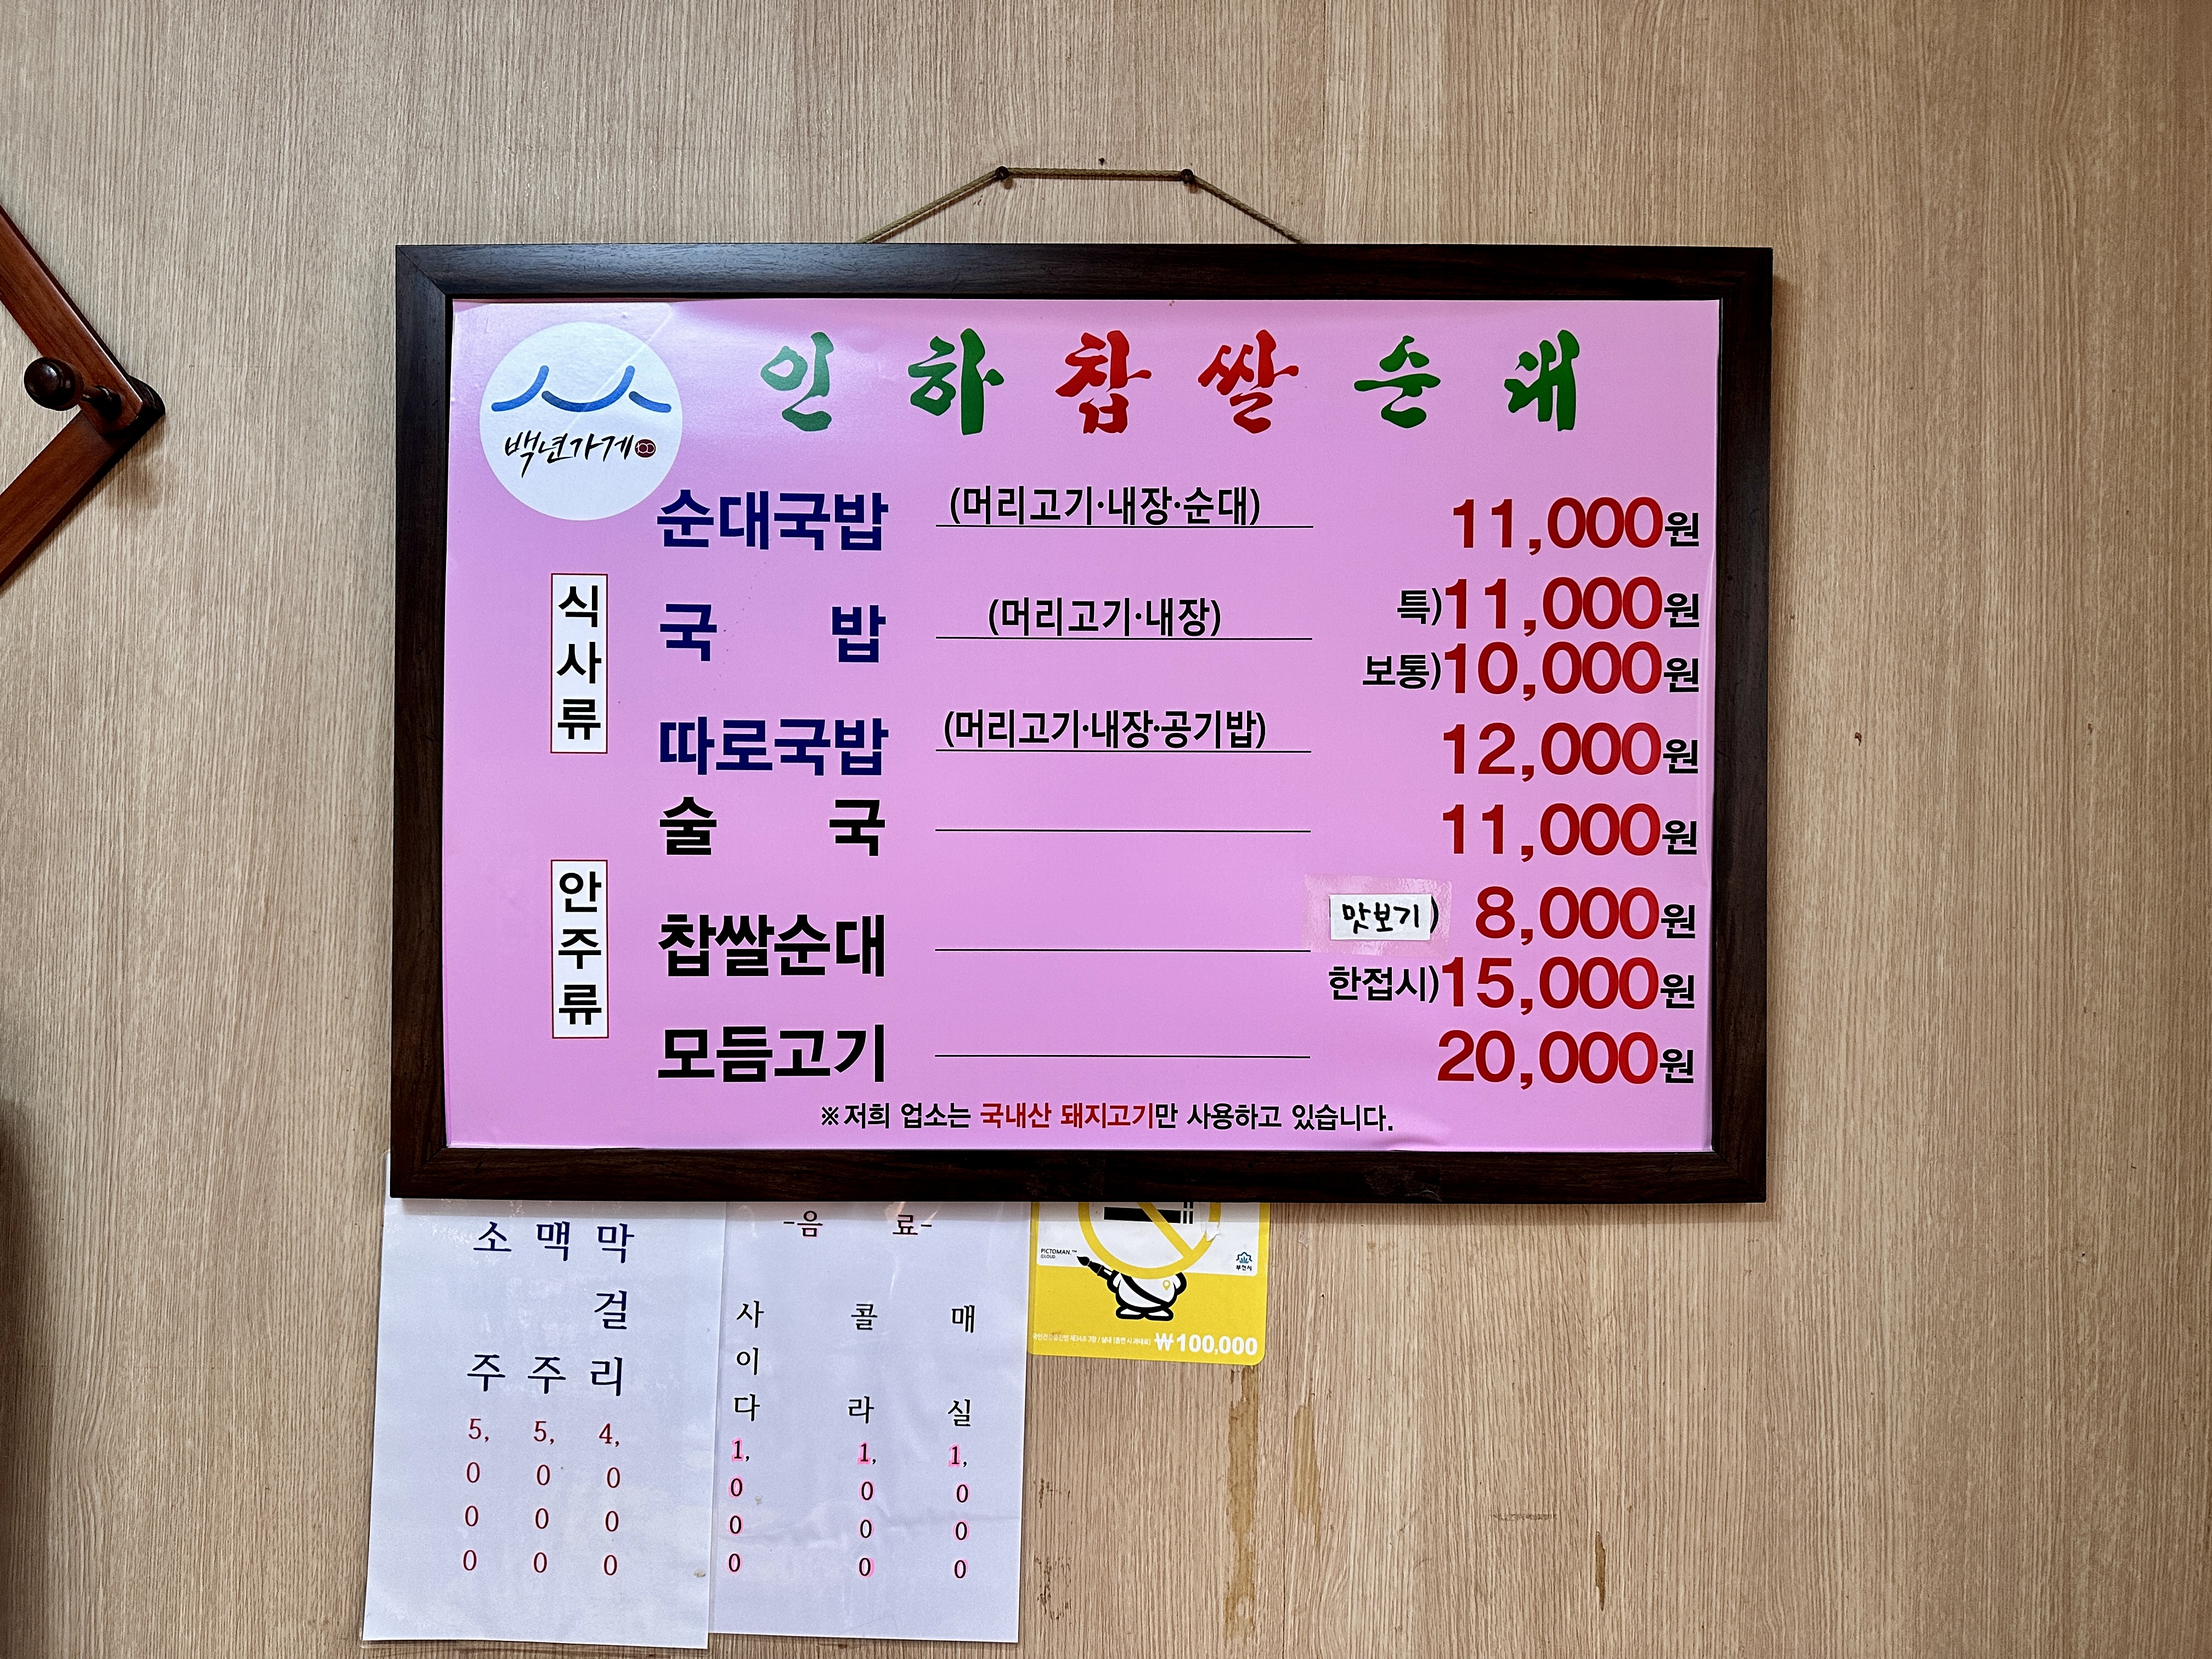 인하찹쌀순대
백년가게
식사류
순대국밥 (머리고기·내장·순대) 11,000원
국밥 (머리고기·내장) 특)11,000원
보통)10,000원
따로국밥 (머리고기·내장·공기밥) 12,000원
안주류
술국 11,000원
찹쌀순대 맛보기) 8,000원
한접시)15,000원
모듬고기 20,000원
※저희 업소는 국내산 돼지고기만 사용하고 있습니다.
소주 5,000
맥주 5,000
막걸리 4,000
-음료-
사이다 1,000
콜라 1,000
매실 1,000
PICTOMAN™
CLOUD
부천시
₩100,000